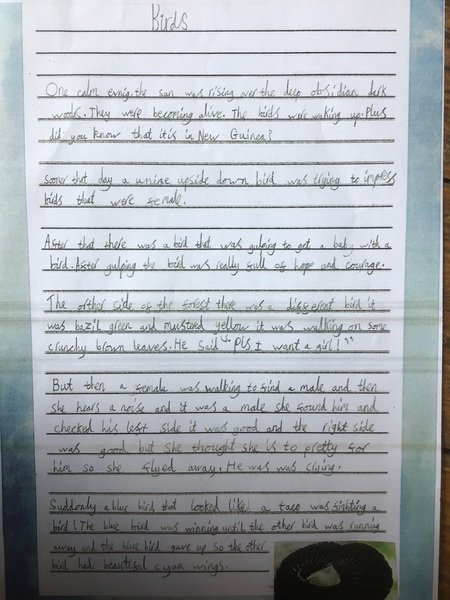 Birds
One calm evnig, the sun was rising over the deep obsidian dark
woods. They were becoming alive. The birds were waking up. Plus
did you know that it is in New Guinea?
sooner that day a unine upside down bird was trying to impress
birds that were female.
After that there was a bird that was gulping to get a baby with a
bird. After gulping the bird was really full of hope and courage.
The orther side of the forest there was a disserent bird it
was bazil green and mustard yellow it was walking on some
crunchy brown leaves. He said "Pls I want a girl!"
But then a female was walking to find a male and then
she hears a noise and it was a male she found him and
checked his left side it was good and the right side
was good but she thought she is to pretty for
him so she flyed away. He was was crying.
Suddonly a blue bird that looked like a taco was fighting a
bird! The blue bird was winning until the other bird was running
away and the blue bird gave up so the other
bird had beautiful cyan wings.